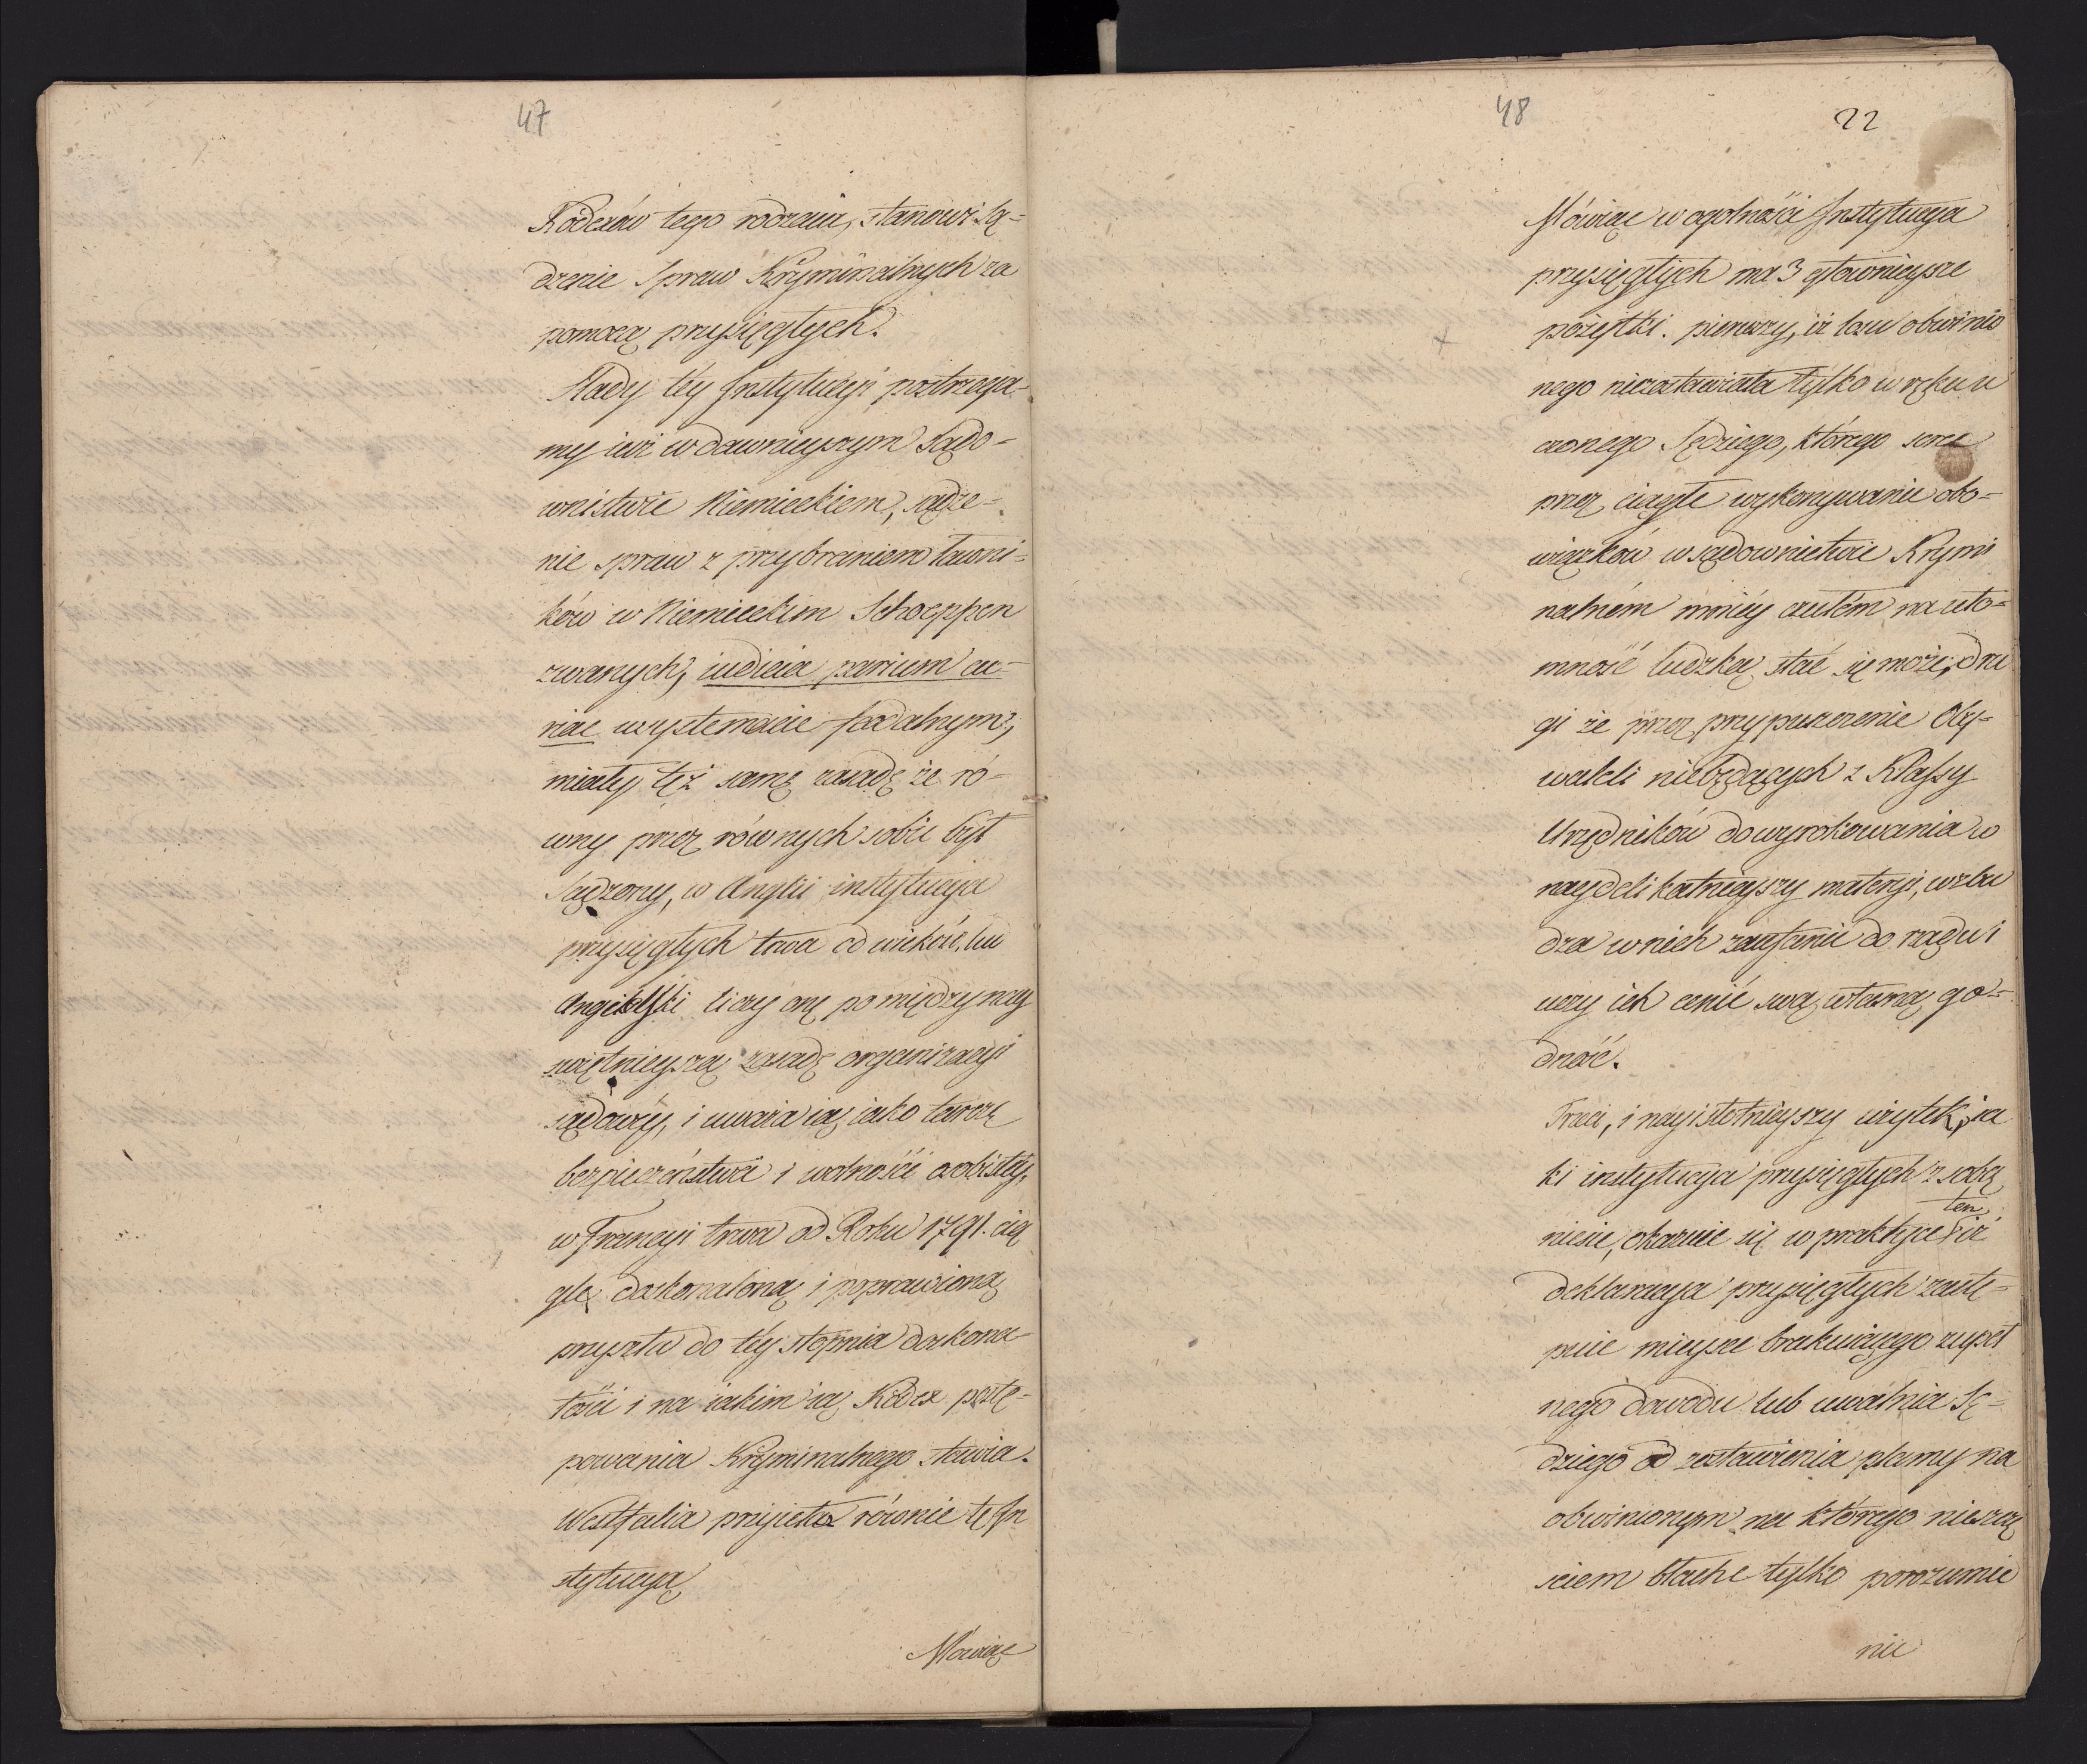 47
Kodexów tego rodzaiu, stanowi Są-
dzenie Spraw Kryminalnych za
pomocą przysięgłych.
Slady téy Instytucyi postrzega-
my iuż w dawnieyszym Sądo-
wnistwie Niemieckiem, sądze-
nie spraw z przybraniem ławni-
ków w Niemieckim Schoeppen
zwanych, iudicia parium cu-
riae w systemacie feodalnym,
miały też samę zasadę że ró-
wny przez równych sobie był
Sądzony, w Anglii instytucya
przysięgłych trwa od wieków, lu
Angielski liczy onę pomiędzy nay
swiętnieyszą zasadę organizacyi
sądowéy, i uważa ią iako tarczę
bezpieczeństwa i wolności osobistéy,
w Francyi trwa od Roku 1791. cią
gle doskonaloną i poprawioną
przyszła do téy stopnia doskona-
łości i na iakim ią Kodex postę-
powania Kryminalnego stawia.
Westfalia przyieła równie tę In
stytucyą
Mówiąc
48
22
Mówiąc w ogolności Instytucya
przysięgłych ma 3 głownieysze
pożytki. pierwszy, iż losu obwinio
nego niezostawiała tylko w ręku u
czonego Sędziego, którego serce
przez ciągłe wykonywanie obo-
wiązków w sądownictwie Krymi
nalném mniéy czułém na uło-
mność ludzką stać się może, dru
gi że przez przypuszczenie Oby-
wateli niebędących z Klassy
Urzędników do wyrokowania w
naydelikatnieyszy materyi, wzbu
dza w nich zaufanie do rządu i
uczy ich cenić swą własną go-
dność.
Trzeci, i nayistotnieyszy użytek, ia
ki instytucya przysięgłych z sobą
niesie, okazuie się w praktyce ten iż
deklaracya przysięgłych zastę-
puie mieysce brakuiącego zupeł
nego dowodu lub uwalnia Sę-
dziego od zostawienia plamy na
obwinionym na którego nieszczę
sciem błache tylko porozumie
nie